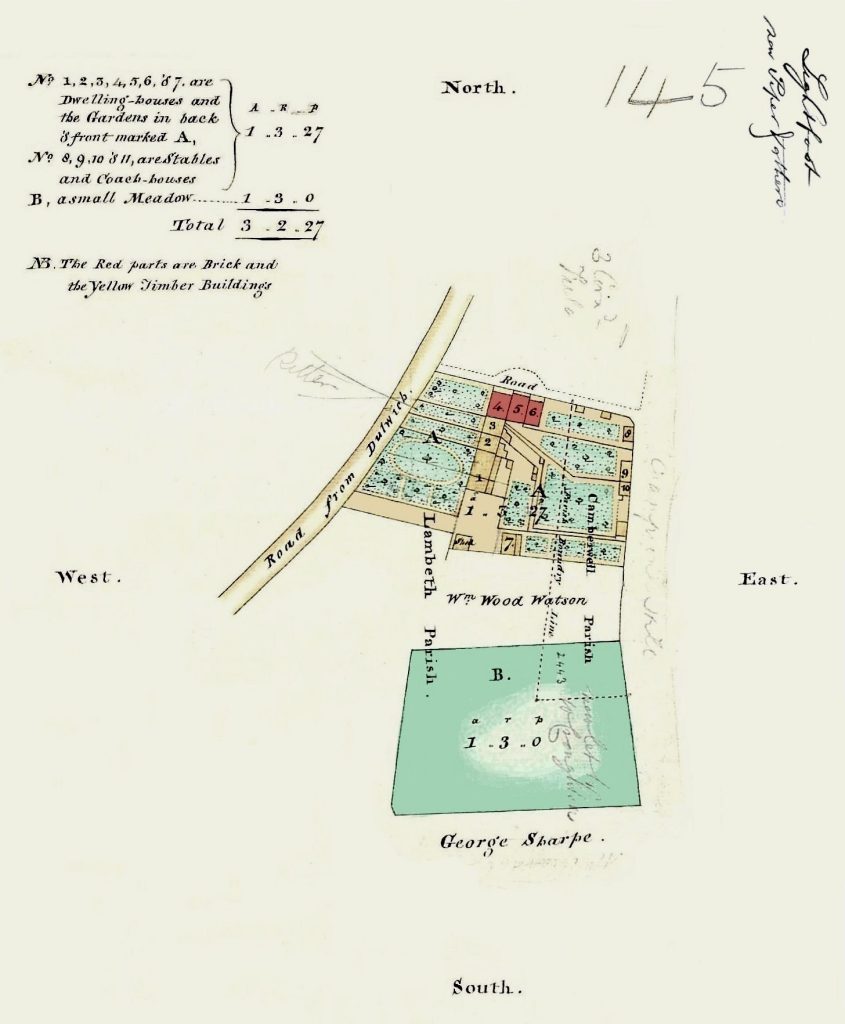 Nº 1, 2, 3, 4, 5, 6, & 7. are
Dwelling-houses and
the Gardens in back
& front marked A,
A - R - P
1 - 3 - 27
Nº 8, 9, 10 & 11, are Stables
and Coach-houses
B, a small Meadow 1 - 3 - 0
Total 3 - 2 - 27
NB. The Red parts are Brick and
the Yellow Timber Buildings
North.
145
Lightfoot
now Piper
Road
4. 5. 6.
3
2
1
8
9
10
7
A
A
1 - 3 - 27
Road from Dulwich.
Lambeth Parish.
Camberwell Parish
Parish Boundry Line
West.
East.
Wm Wood Watson
2443
B.
a r p
1 - 3 - 0
now let to
George Sharpe.
South.